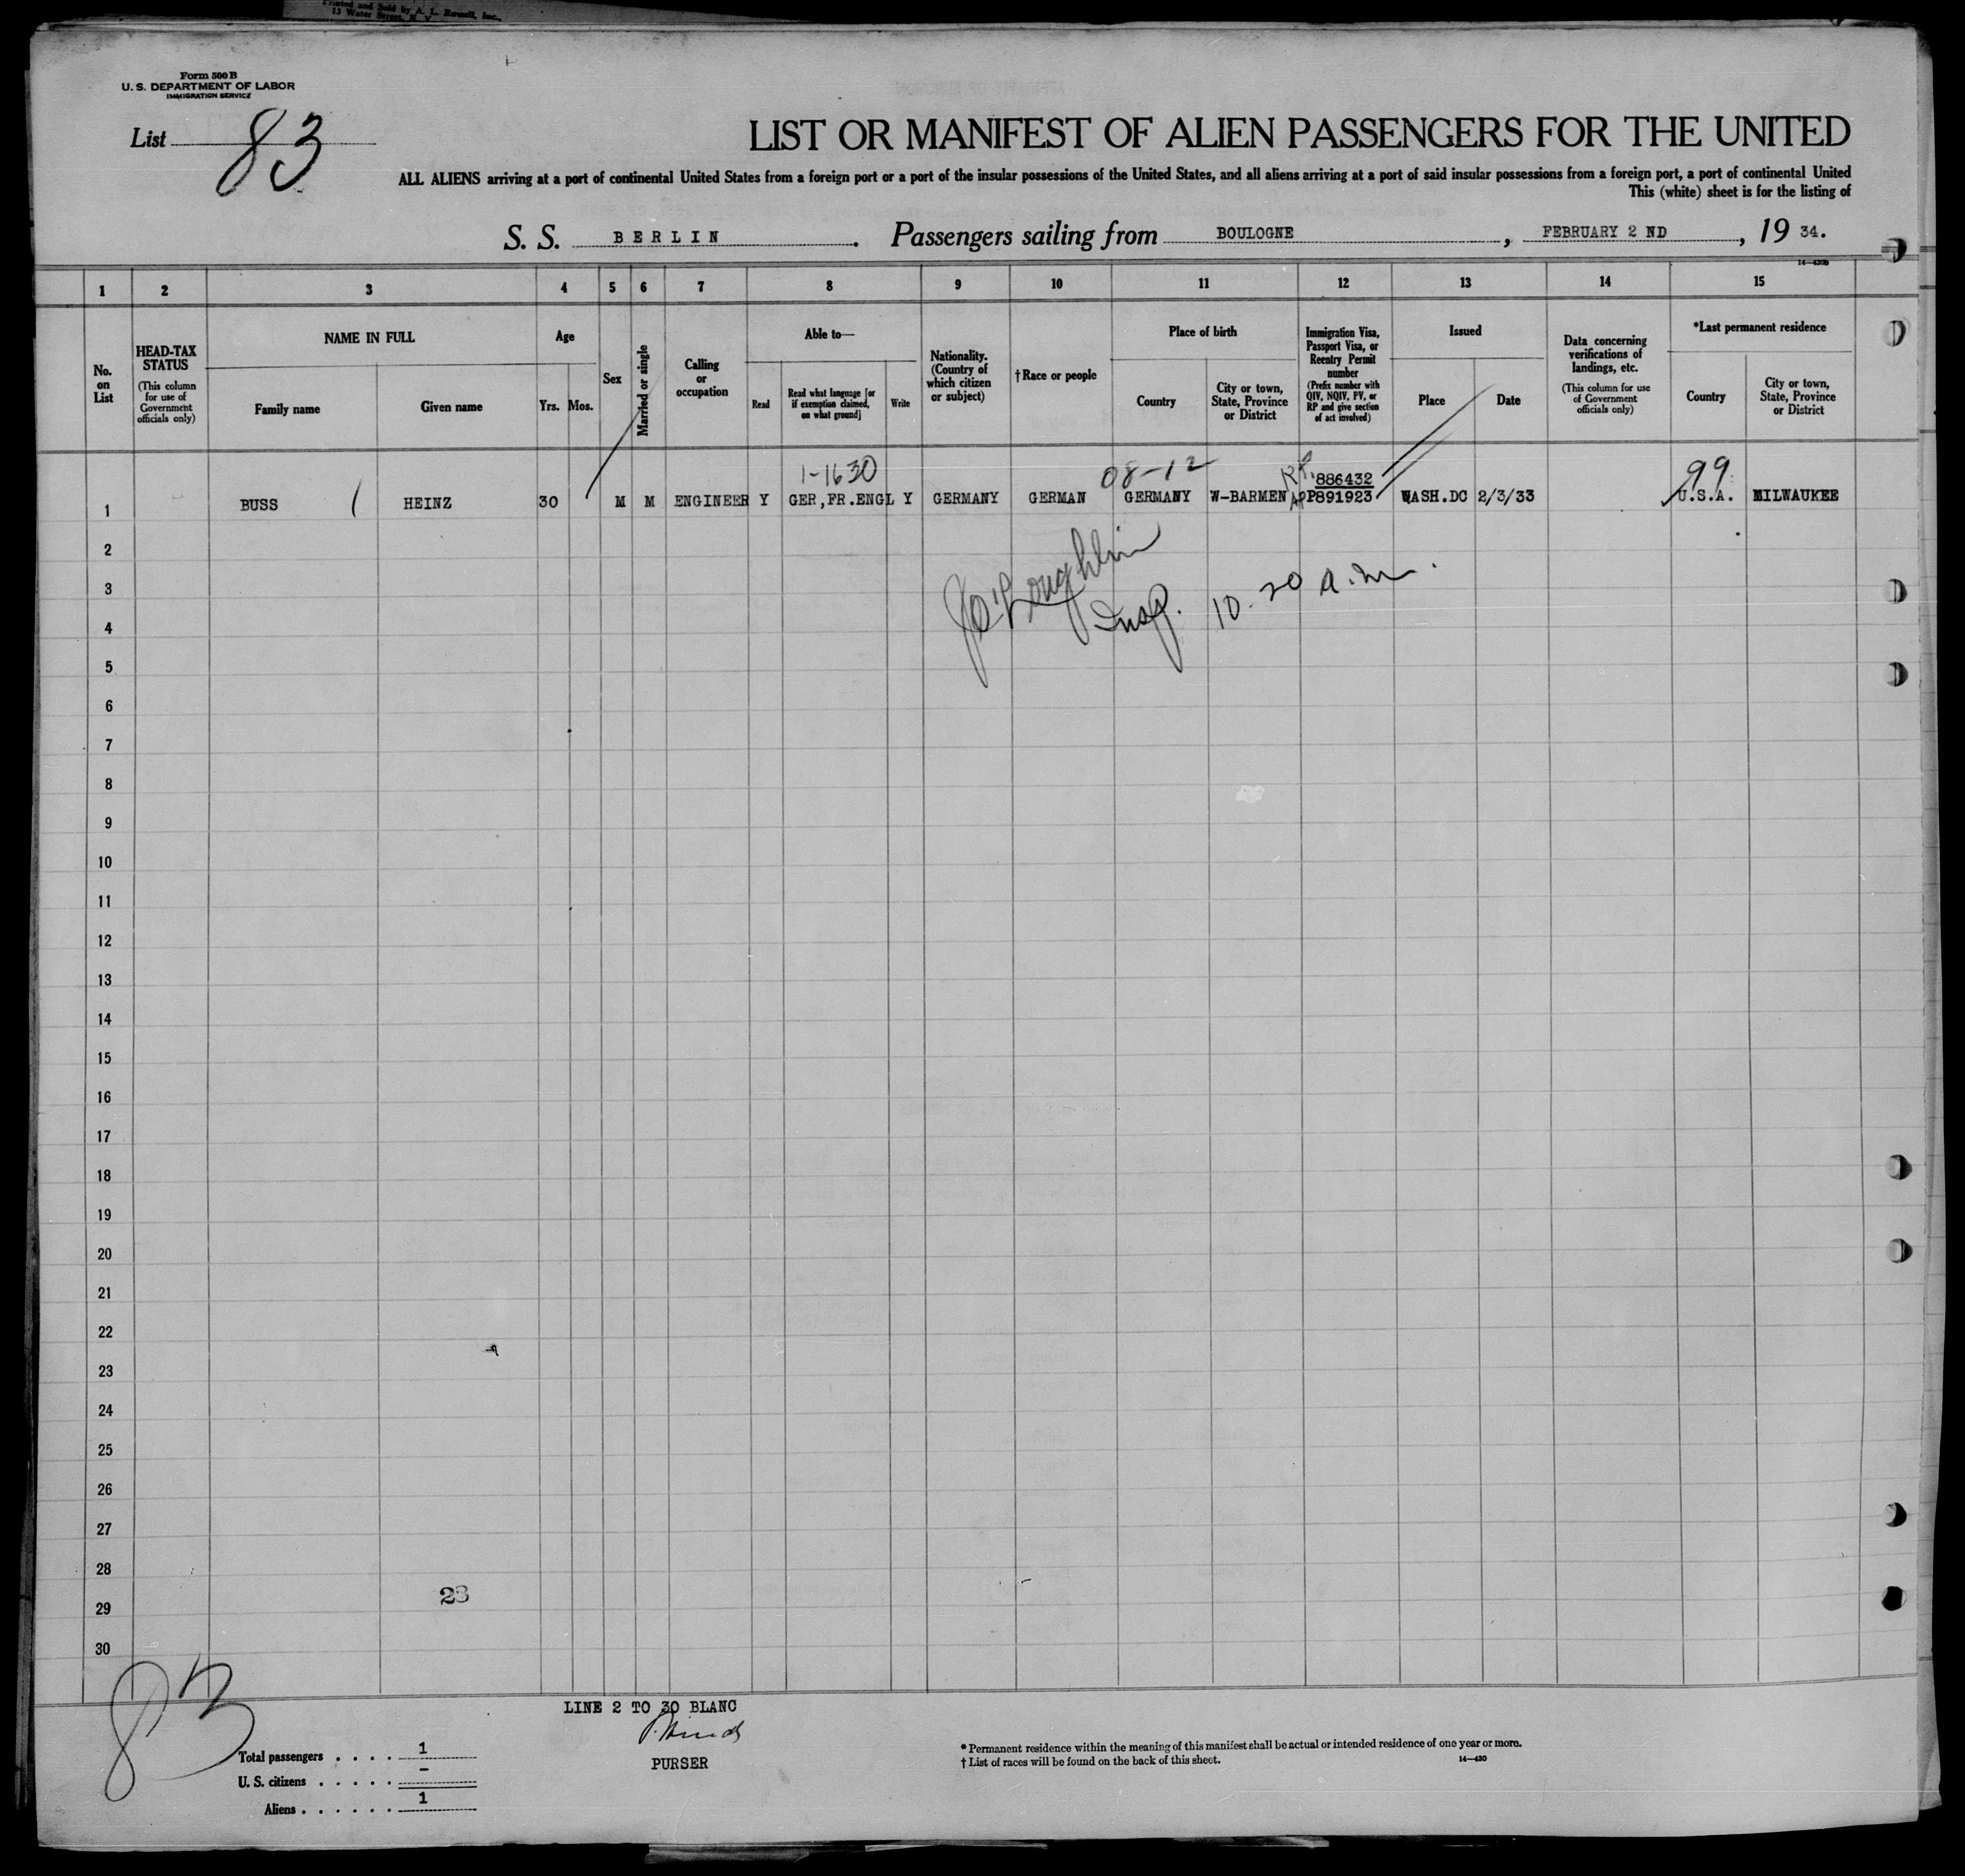 Printed and Sold by A. L. Russell, Inc.,
13 Water Street, N. Y.
Form 500 B
U. S. DEPARTMENT OF LABOR
IMMIGRATION SERVICE
List 83
LIST OR MANIFEST OF ALIEN PASSENGERS FOR THE UNITED
ALL ALIENS arriving at a port of continental United States from a foreign port or a port of the insular possessions of the United States, and all aliens arriving at a port of said insular possessions from a foreign port, a port of continental United
This (white) sheet is for the listing of
S. S. BERLIN. Passengers sailing from BOULOGNE, FEBRUARY 2 ND, 19 34.
1 2 3 4 5 6 7 8 9 10 11 12 13 14 15
No. on List
HEAD-TAX STATUS
(This column for use of Government officials only)
NAME IN FULL
Family name
Given name
Age
Yrs. Mos.
Sex
Married or single
Calling or occupation
Able to—
Read
Read what language [or if exemption claimed, on what ground]
Write
Nationality. (Country of which citizen or subject)
†Race or people
Place of birth
Country
City or town, State, Province or District
Immigration Visa, Passport Visa, or Reentry Permit number
(Prefix number with QIV, NQIV, PV, or RP and give section of act involved)
Issued
Place
Date
Data concerning verifications of landings, etc.
(This column for use of Government officials only)
*Last permanent residence
Country
City or town, State, Province or District
1-1630 08-12 RP. 886432 99
1 BUSS HEINZ 30 M M ENGINEER Y GER,FR.ENGL Y GERMANY GERMAN GERMANY W-BARMEN P891923 WASH.DC 2/3/33 U.S.A. MILWAUKEE
2
J O'Loughlin
3
Insp. 10.20 a.m.
4
5
6
7
8
9
10
11
12
13
14
15
16
17
18
19
20
21
22
23
24
25
26
27
28
23
29
30
83
LINE 2 TO 30 BLANC
PURSER
Total passengers . . . . 1
U. S. citizens . . . . . –
Aliens . . . . . . 1
* Permanent residence within the meaning of this manifest shall be actual or intended residence of one year or more.
† List of races will be found on the back of this sheet.
14—430